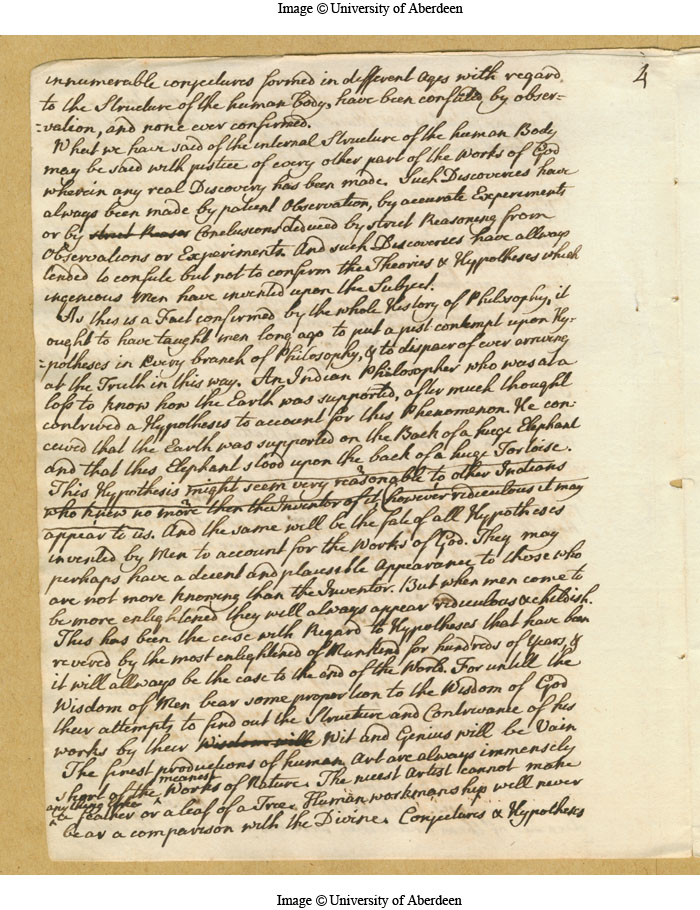 Image © University of Aberdeen
4
innumerable conjectures formed in different Ages with regard
to the Structure of the human body, have been confuted by obser=
=vation, and none ever confirmed.
What we have said of the internal Structure of the human Body
may be said with justice of every other part of the Works of God
wherein any real Discovery has been made. Such Discoveries have
always been made by patient Observation, by accurate Experiments
or by strict Reason Conclusions deduced by strict Reasoning from
Observations or Experiments. And such Discoveries have allways
tended to confute but not to confirm the Theories & Hypotheses which
ingenious Men have invented upon the Subject.
As this is a Fact confirmed by the whole History of Philosophy, it
ought to have taught men long ago to put a just contempt upon Hy-
=potheses in every branch of Philosophy, & to dispair of ever arriving
at the Truth in this way. An Indian Philosopher who was at a
loss to know how the Earth was supported, after much thought
contrived a Hypothesis to account for this Phenomenon. He con-
ceived that the Earth was supported on the Back of a huge Elephant
and that this Elephant stood upon the back of a huge Tortoise.
This Hypothesis might seem very reasonable to other Indians
who knew no more then the Inventor of it, however ridiculous it may
appear to us. And the same will be the fate of all Hypotheses
invented by Men to account for the Works of God. They may
perhaps have a decent and plausible Appearance to those who
are not more knowing than the Inventor. But when men come to
be more enlightened they will always appear ridiculous & childish.
This has been the case with Regard to Hypotheses that have been
revered by the most enlightned of Mankind for hundreds of Years, &
it will allways be the case to the end of the World. For untill the
Wisdom of Men bear some proportion to the Wisdom of God
their attempts to find out the Structure and Contrivance of his
works by their Wisdom will Wit and Genius will be Vain
The finest productions of human Art are always immensely
short of the meanest Works of Nature. The nicest Artist cannot make
anything like
a feather or a leaf of a Tree. Human workmanship will never
bear a comparison with the Divine. Conjectures & Hypotheses
Image © University of Aberdeen